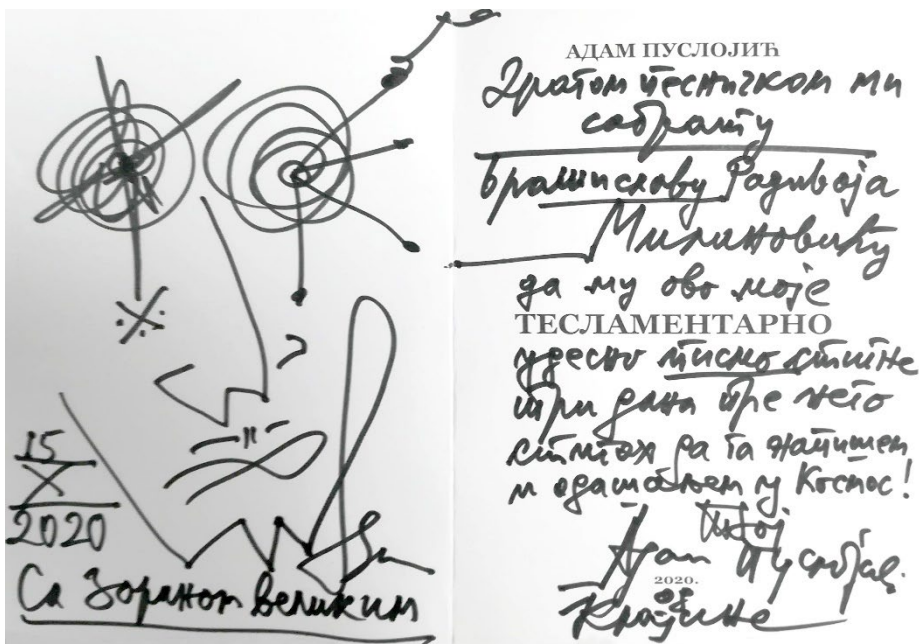 15
X
2020
Са Зораном великим
АДАМ ПУСЛОЈИЋ
Драгом песничком ми
сабрату
Братиславу Радивоја
Милановићу
да му ово моје
ТЕСЛАМЕНТАРНО
писмо стигне
три дана пре него
стигох да га напишем
и у Космос!
Твој
Адам Пуслојић
2020.
Крајине